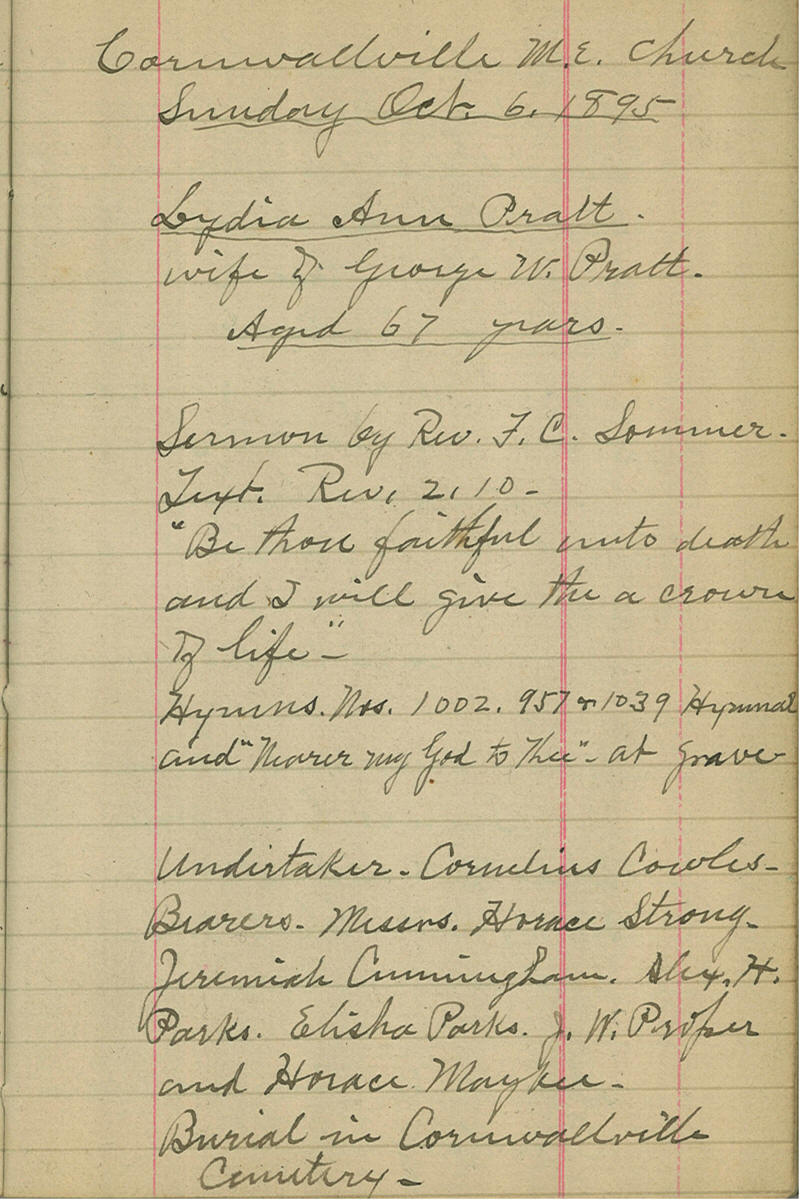 Cornwallville M.E. Church
Sunday Oct. 6. 1895
Lydia Ann Pratt.
wife of George W. Pratt.
Aged 67 years.
Sermon by Rev. F. C. Sommer.
Text. Rev. 2. 10 -
"Be thou faithful unto death
and I will give the a crown
of life" -
Hymns. Nos. 1002. 957 & 1039 Hymnal
and "Nearer my God to Thee" - at grave
Undertaker - Cornelius Cowles -
Bearers - Messrs. Horace Strong -
Jeremiah Cunningham. Alex. H.
Parks. Elisha Parks. J. W. Proper
and Horace Maybee -
Burial in Cornwallville
Cemetery -